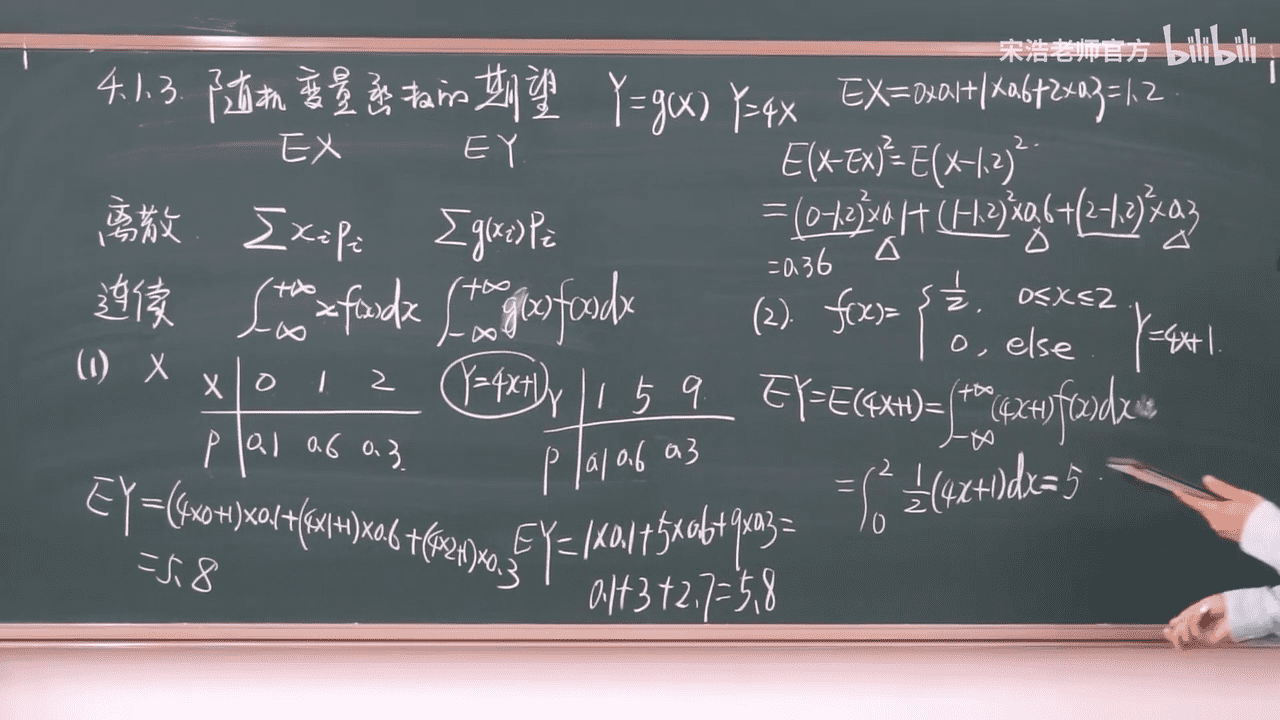 宋浩老师官方 bilibili
4.1.3. 随机变量函数的期望 Y=g(x) Y=4X
EX EY
离散 ∑xᵢpᵢ ∑g(xᵢ)Pᵢ
连续 ∫_{-∞}^{+∞} xf(x)dx ∫_{-∞}^{+∞} g(x)f(x)dx
(1) X
X 0 1 2
P 0.1 0.6 0.3
Y=4X+1
Y 1 5 9
P 0.1 0.6 0.3
EY=(4×0+1)×0.1+(4×1+1)×0.6+(4×2+1)×0.3
=5.8
EY=1×0.1+5×0.6+9×0.3=
0.1+3+2.7=5.8
EX=0×0.1+1×0.6+2×0.3=1.2
E(X-EX)²=E(X-1.2)²
=(0-1.2)²×0.1+(1-1.2)²×0.6+(2-1.2)²×0.3
=0.36
(2). f(x)= { 1/2, 0≤x≤2
0, else. Y=4X+1.
EY=E(4X+1)=∫_{-∞}^{+∞} (4x+1)f(x)dx
=∫_0^2 1/2(4x+1)dx=5